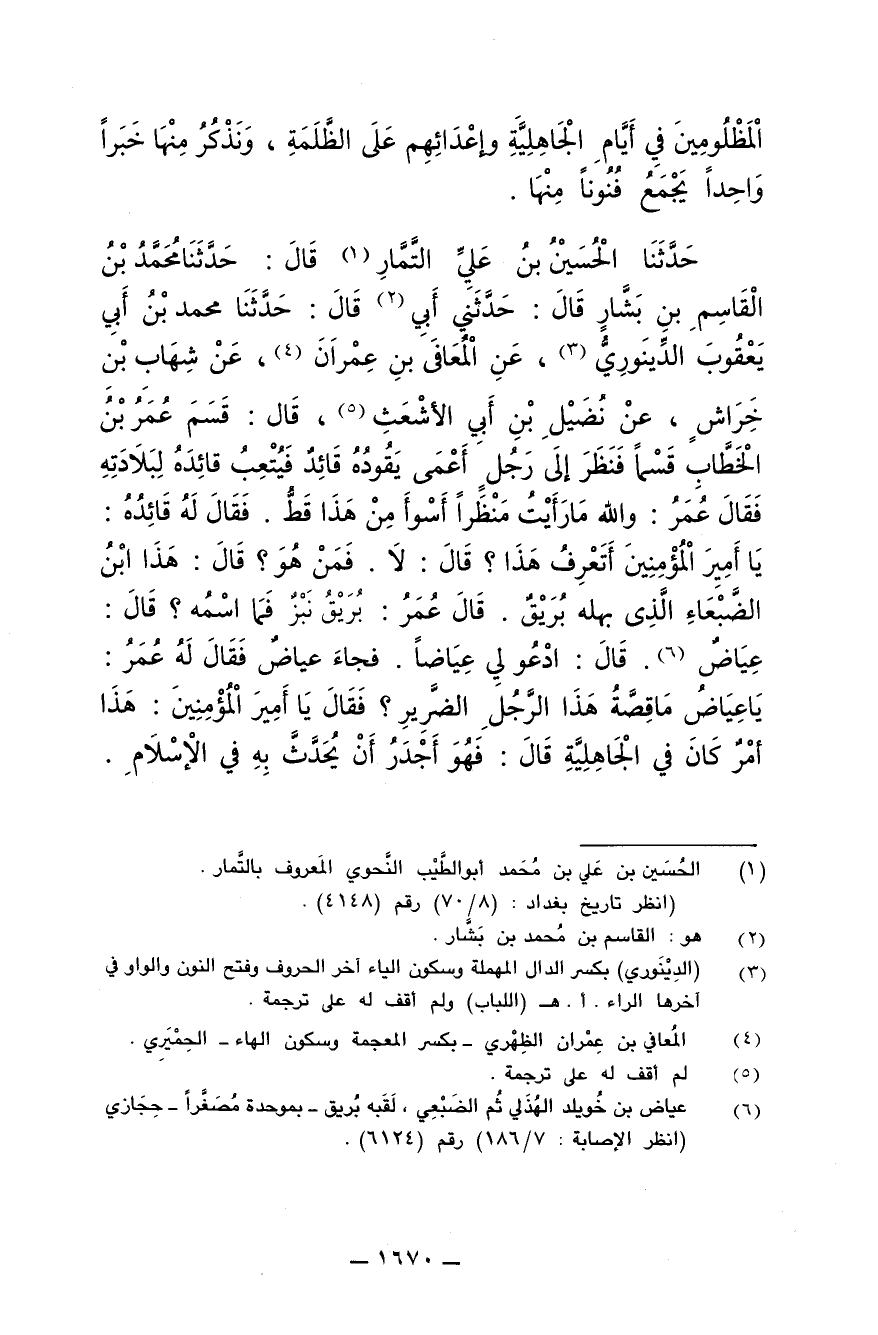 اَلْمَظْلُومِينَ فِي أَيَّامِ الْجَاهِلِيَّةِ وإعْدَائِهِم عَلَى الظَّلَمَةِ ، وَنَذْكُرُ مِنْهَا خَبَراً
وَاحِداً يَجْمَعُ فُنُوناً مِنْهَا .
حَدَّثَنَا الْحُسَيْنُ بنُ عَلِيِّ التَّمَّارِ (١) قَالَ : حَدَّثَنَا مُحَمَّدُ بْنُ
الْقَاسِمِ بنِ بَشَّارٍ قَالَ : حَدَّثَنِي أَبِي (٢) قَالَ : حَدَّثَنَا محمد بْنُ أَبِي
يَعْقُوبَ الدِّينَوَرِيُّ (٣) ، عَنِ الْمُعَافَى بنِ عِمْرَانَ (٤) ، عَنْ شِهَاب بْن
خِرَاشٍ ، عنْ نُضَيْلِ بْنِ أَبِي الأشْعَثِ (٥) ، قَال : قَسَمَ عُمَرُ بْنُ
الْخَطَّابِ قَسْماً فَنَظَرَ إلَى رَجُلٍ أَعْمَى يَقُودُهُ قَائِدٌ فَيُتْعِبُ قائِدَهُ لِبَلَادَتِهِ
فَقَالَ عُمَرُ : والله مَارَأَيْتُ مَنْظَراً أَسْوأَ مِنْ هَذَا قَطُّ . فَقَالَ لَهُ قَائِدُهُ :
يَا أَمِيرَ الْمُؤْمِنِينَ أَتَعْرِفُ هَذَا ؟ قَالَ : لَا . فَمَنْ هُوَ ؟ قَالَ : هَذَا ابْنُ
الضَّبْعَاءِ الَّذِى بهله بُرَيْقٌ . قَالَ عُمَرُ : بُرَيْقُ نَبْزٌ فَمَا اسْمُه ؟ قَالَ :
عِيَاضٌ (٦) . قَالَ : ادْعُو لِي عِيَاضاً . فجاءَ عياضٌ فَقَالَ لَهُ عُمَرُ :
يَاعِيَاضُ مَاقِصَّةُ هَذَا الرَّجُلِ الضرِيرِ ؟ فَقَالَ يَا أَمِيرَ الْمُؤْمِنِينَ : هَذَا
أمْرٌ كَانَ فِي الْجَاهِلِيَّةِ قَالَ : فَهُوَ أَجْدَرُ أَنْ يُحَدَّثَّ بِهِ فِي الْإِسْلَامِ .
(١) الحُسَين بن عَلي بن مُحَمد أبوالطَّيْب النَّحوي المَعروف بالتَّمار .
(انظر تاريخ بغداد : (٧٠/٨) رقم (٤١٤٨) .
(٢) هو : القاسم بن مُحمد بن بَشَّار .
(٣) (الدِيْنَوري) بكسر الدال المهملة وسكون الياء آخر الحروف وفتح النون والواو في
آخرها الراء . أ . هـ (اللباب) ولم أقف له على ترجمة .
(٤) المُعافي بن عِمْران الظِهْري ـ بكسر المعجمة وسكون الهاء ـ الحِمْيَري .
(٥) لم أقف له على ترجمة .
(٦) عياض بن خُويلد الهُذَلي ثُم الضَبْعِي ، لَقَبه بُريق ـ بموحدة مُصَغَّراً ـ حِجَازي
(انظر الإصابة : ١٨٦/٧) رقم (٦١٢٤) .
ـ ١٦٧٠ ـ